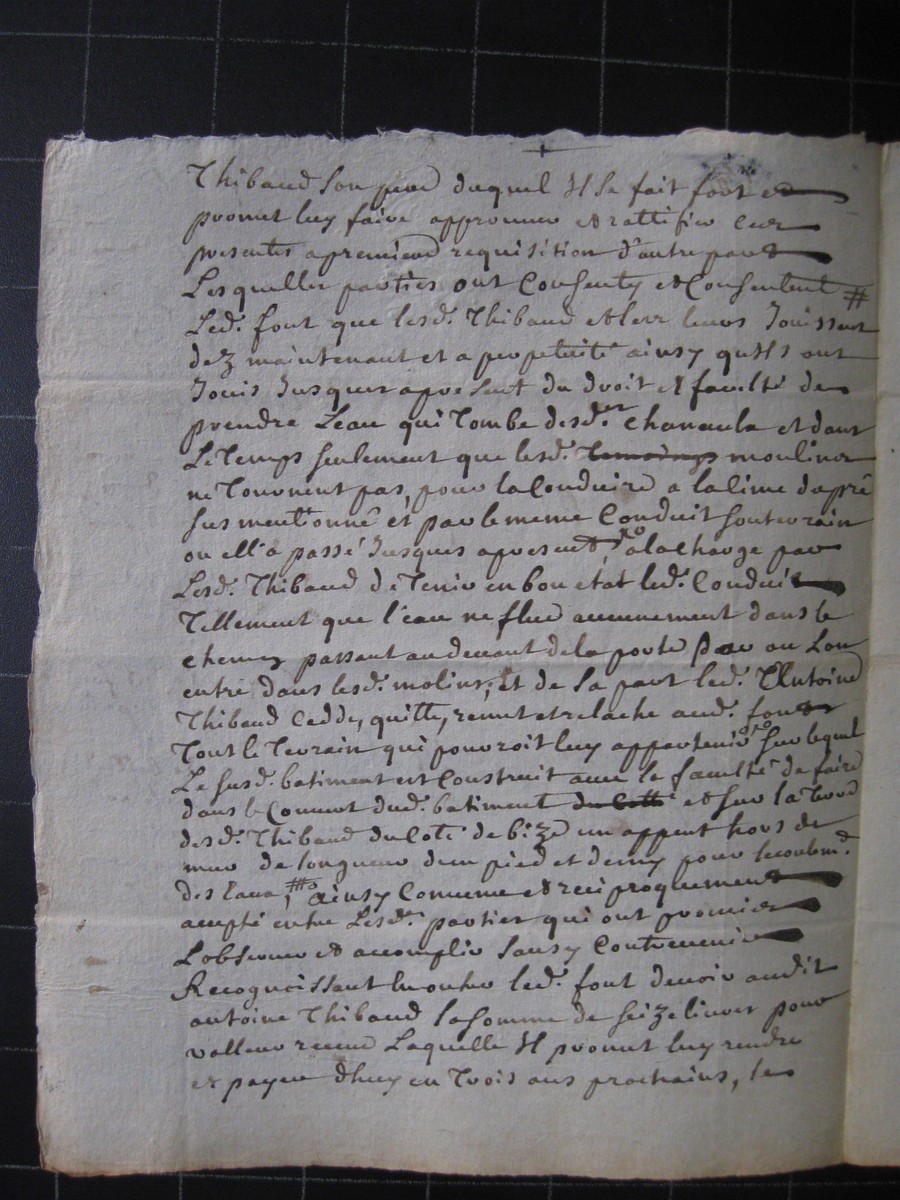 Thibaud son pere duquel Il se fait fort et
promet luy faire approuuer et rattifier Ces
presentes a premiere requisition d'autre part
Lesquelles parties ont Consenty et Consentent #
Led. font que lesd. Thibaud et les leurs Jouissent
dez maintenant et a perpetuité ainsy qu'Ils ont
Jouis Jusques apresent du droit et faculté de
prendre L'eau qui Tombe desd. chanaula et dans
Le Temps seulement que lesd. moulins
ne Tournent pas, pour la Conduire a la Cime du pré
sus mentionné et par le meme Conduit souterrain
ou ell'a passé Jusques apresent, a la charge par
Lesd. Thibaud de Tenir en bon etat led. Conduit
Tellement que l'eau ne flue aucunement dans le
chemin passant au deuant de la porte par ou Lon
entre dans lesd. molins, et de sa part led. Antoine
Thibaud Cedde, quitte, remet et relache aud. font
Tout le Terrain qui pourroit luy appartenir sur lequel
Le susd. batiment est Construit auec la faculté de faire
dans le Couuert dud. batiment du Cotté et sur la
desd. Thibaud du Coté de bize un appent hors de
mur de longueur d'un pied et demy pour lecoulemt.
des Eaux, ainsy Conuenu et reciproquement
accepté entre Lesd. parties qui ont promis
L'obseruer et accomplir sans y Contreuenir
Recognoissant led. font deuoir audit
antoine Thibaud la somme de seize liures pour
valleur receue Laquelle Il promet luy rendre
et payer d'huy en Trois ans prochains, le